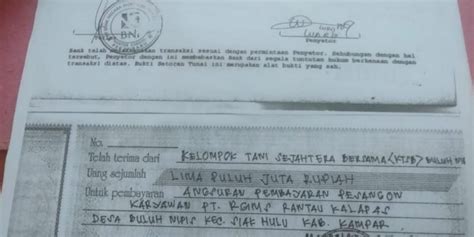 BNI
Penyetor
Bank telah melaksanakan transaksi sesuai dengan permintaan Penyetor. Sehubungan dengan hal
tersebut, Penyetor dengan ini membebaskan Bank dari segala tuntutan hukum berkenaan dengan
transaksi diatas. Bukti Setoran Tunai ini merupakan alat bukti yang sah.
No.
Telah terima dari KELOMPOK TANI SEJAHTERA BERSAMA (KTSB) BULUH
Uang sejumlah LIMA PULUH JUTA RUPIAH
Untuk pembayaran ANGSURAN PEMBAYARAN PESANGON
KARYAWAN PT. RGIMS RANTAU KALAPAS
DESA BULUH NIPIS KEC. SIAK HULU KAB. KAMPAR